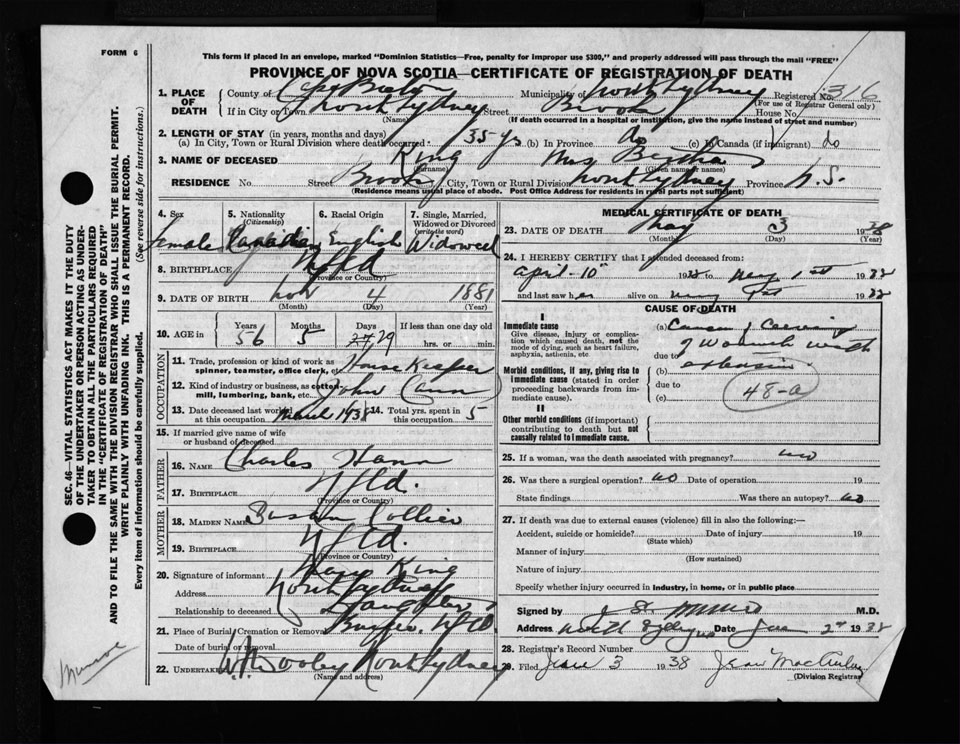 FORM 6
This form if placed in an envelope, marked "Dominion Statistics—Free, penalty for improper use $300," and properly addressed will pass through the mail "FREE"
PROVINCE OF NOVA SCOTIA—CERTIFICATE OF REGISTRATION OF DEATH
1. PLACE OF DEATH
County of Cape Breton Municipality of North Sydney Registered No. 316
(For use of Registrar General only)
If in City or Town North Sydney Street Brook House No.
(Name) (If death occurred in a hospital or institution, give the name instead of street and number)
2. LENGTH OF STAY (in years, months and days)
(a) In City, Town or Rural Division where death occurred 35 yrs (b) In Province do (c) In Canada (if immigrant) do
3. NAME OF DECEASED King Mrs Bertha
(Surname) (Given name or names)
RESIDENCE No. Street Brook City, Town or Rural Division North Sydney Province N.S.
(Residence means usual place of abode. Post Office Address for residents in rural parts not sufficient)
4. Sex 5. Nationality (Citizenship) 6. Racial Origin 7. Single, Married, Widowed or Divorced (write the word)
Female Canadian English Widowed
8. BIRTHPLACE Nfld
(Province or Country)
9. DATE OF BIRTH Nov 4 1881
(Month) (Day) (Year)
10. AGE in Years Months Days If less than one day old
56 5 29 hrs. or min.
OCCUPATION
11. Trade, profession or kind of work as spinner, teamster, office clerk, etc House Keeper
12. Kind of industry or business, as cotton mill, lumbering, bank, etc.
13. Date deceased last worked at this occupation March 1938 14. Total yrs. spent in this occupation 5
15. If married give name of wife or husband of deceased
FATHER
16. NAME Charles Hann
17. BIRTHPLACE Nfld.
(Province or Country)
MOTHER
18. MAIDEN NAME Susan Collier
19. BIRTHPLACE Nfld.
(Province or Country)
20. Signature of informant Mary King
Address North Sydney
Relationship to deceased Daughter
21. Place of Burial, Cremation or Removal Nfld.
Date of burial or removal
22. Undertaker W. H. Dooley North Sydney
(Name and address)
MEDICAL CERTIFICATE OF DEATH
23. DATE OF DEATH May 3 1938
(Month) (Day) (Year)
24. I HEREBY CERTIFY that I attended deceased from:
April - 10th 1938 to May 1st 1938
and last saw her alive on May 1st 1938
CAUSE OF DEATH
I
Immediate cause
Give disease, injury or complication which caused death, not the mode of dying, such as heart failure, asphyxia, asthenia, etc
(a) Cancer of
due to
Morbid conditions, if any, giving rise to immediate cause (stated in order proceeding backwards from immediate cause).
(b) extension
due to
(c) 48-a
II
Other morbid conditions (if important) contributing to death but not causally related to immediate cause.
25. If a woman, was the death associated with pregnancy? no
26. Was there a surgical operation? no Date of operation 19
State findings Was there an autopsy? no
27. If death was due to external causes (violence) fill in also the following:—
Accident, suicide or homicide? Date of injury 19
(State which)
Manner of injury
(How sustained)
Nature of injury
Specify whether injury occurred in industry, in home, or in public place
Signed by M.D.
Address North Sydney NS Date June 2nd 1938
28. Registrar's Record Number
29. Filed June 3 1938 Jean
(Division Registrar)
SEC. 46—VITAL STATISTICS ACT MAKES IT THE DUTY
OF THE UNDERTAKER OR PERSON ACTING AS UNDER-
TAKER TO OBTAIN ALL THE PARTICULARS REQUIRED
IN THE "CERTIFICATE OF REGISTRATION OF DEATH"
AND TO FILE THE SAME WITH THE DIVISION REGISTRAR WHO SHALL ISSUE THE BURIAL PERMIT.
WRITE PLAINLY WITH UNFADING INK. THIS IS A PERMANENT RECORD.
Every item of information should be carefully supplied. (See reverse side for instructions.)
Munroe